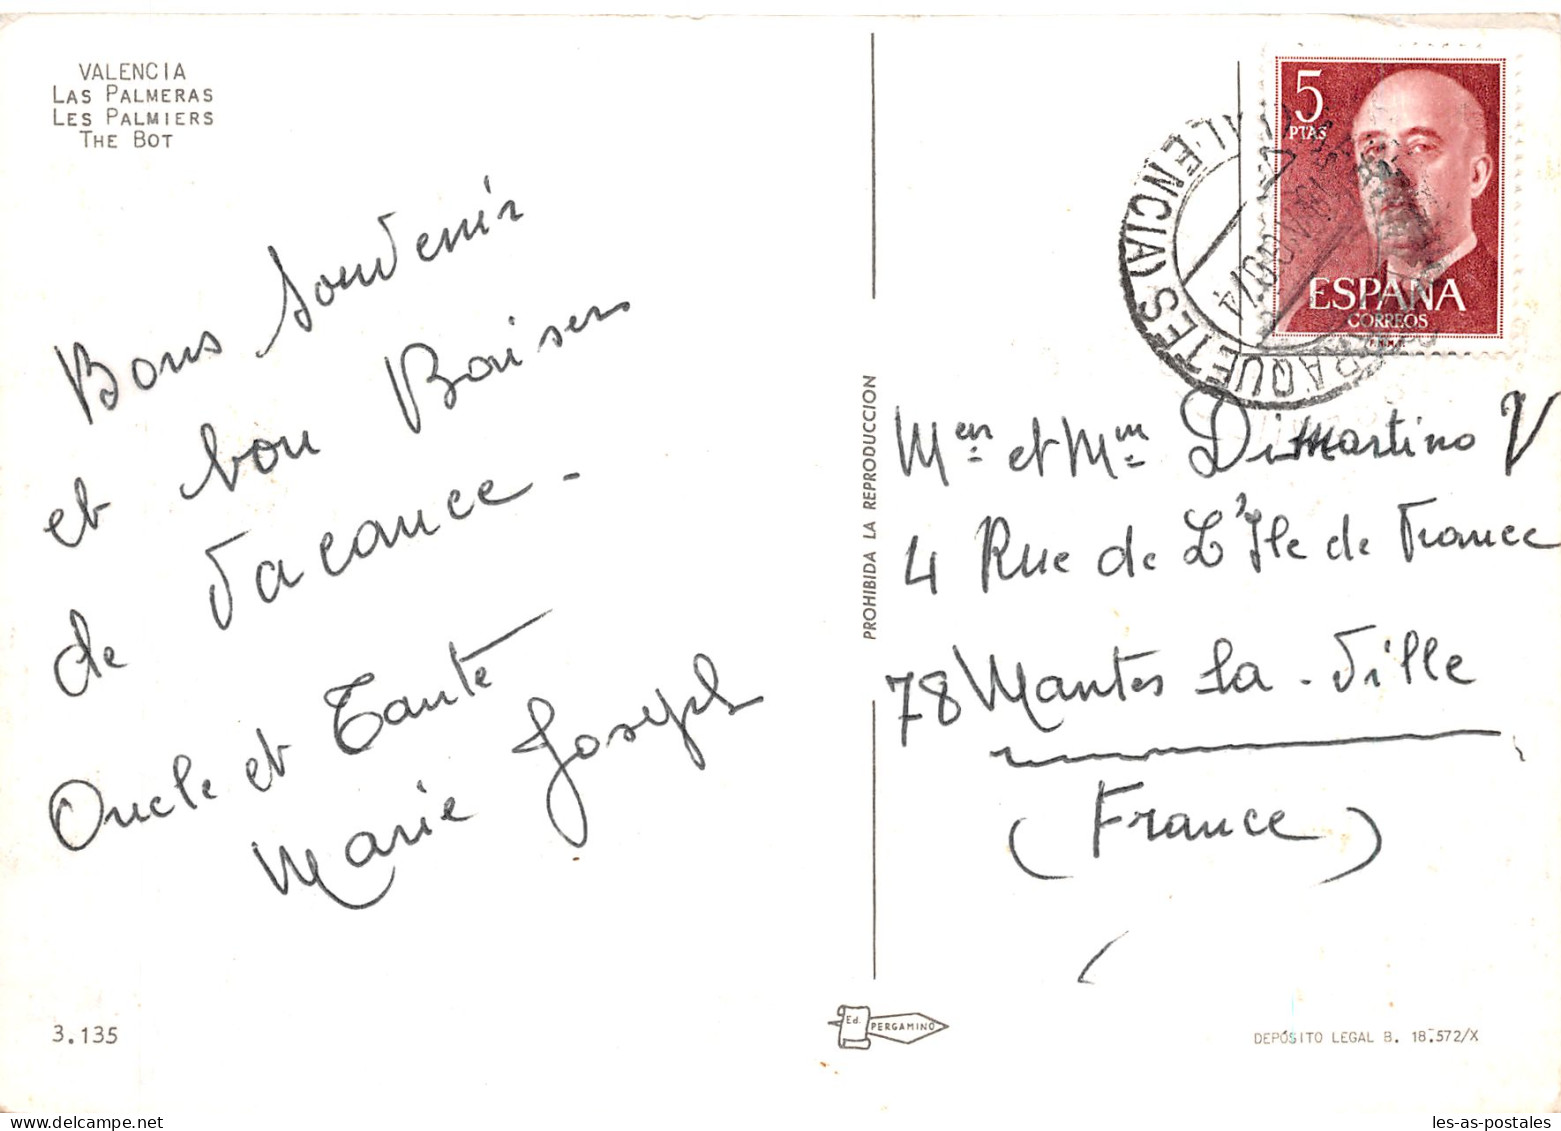 VALENCIA
LAS PALMERAS
LES PALMIERS
THE BOT
Bons Souvenir
et bon Baisers
de Vacance -
Oncle et Tante
Marie Joseph
3.135
PROHIBIDA LA REPRODUCCION
Ed. PERGAMINO
5
PTAS
ESPAÑA
CORREOS
F.N.M.T.
TABERNES BLANQUES (VALENCIA)
Mer et Mme Dimartino V
4 Rue de L'Ile de France
78 Mantes la-Ville
(France)
DEPÓSITO LEGAL B. 18.572/X
les-as-postales